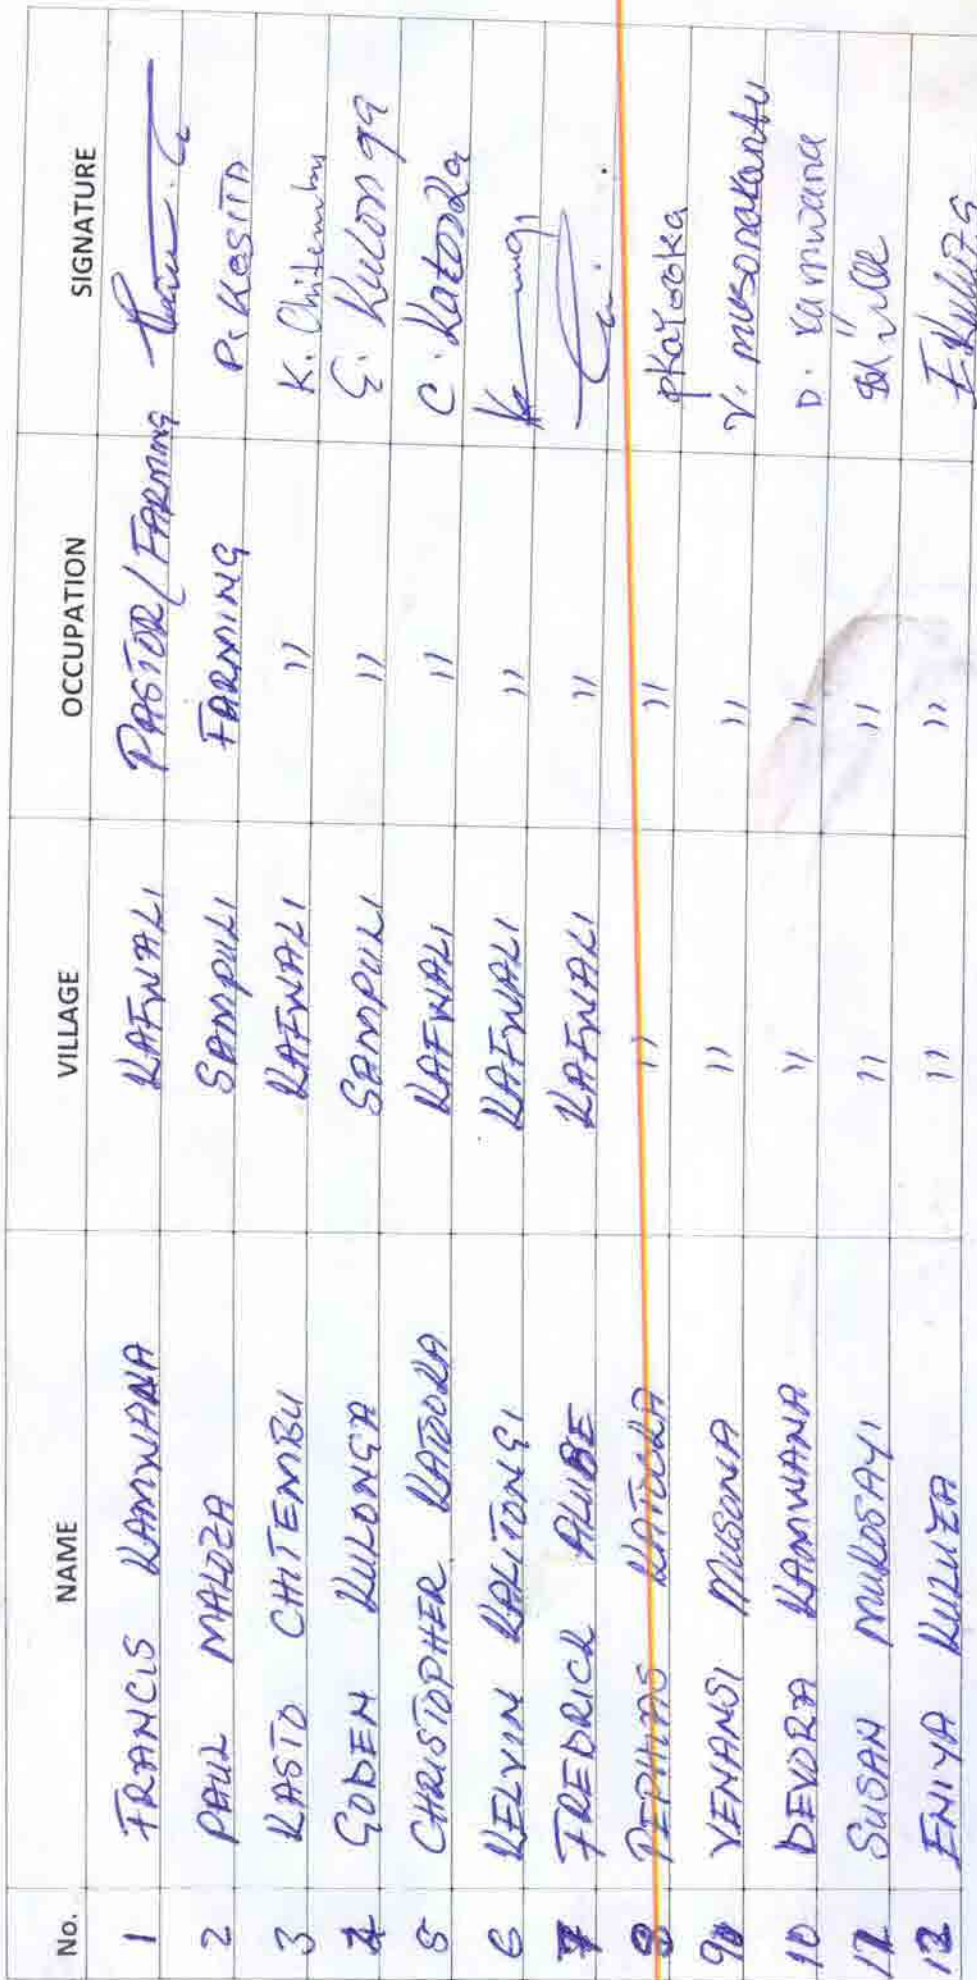 No. NAME VILLAGE OCCUPATION SIGNATURE
1 FRANCIS KAMWANA KAFWALI PASTOR/FARMING
2 PAUL MALOZA SAMPULI FARMING P. KESITA
3 KASTO CHITEMBU KAFWALI " K. Chitembu
4 GODEN KULONGA SAMPULI " G. Kulonga
5 CHRISTOPHER KATOKA KAFWALI " C. Katoka
6 KELVIN KALITONGI KAFWALI "
7 FREDRICK ALUBE KAFWALI "
8 KATOKA " "
9 VENANSI MUSONA " " V. musonakantu
10 DEVORA KAMWANA " " D. Kamwana
SUSAN MUKOSAYI " "
12 ENIYA KULUZA " " E. Kuluza